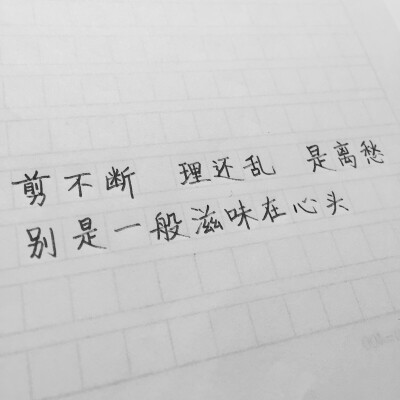 剪不断 理还乱 是离愁
别是一般滋味在心头